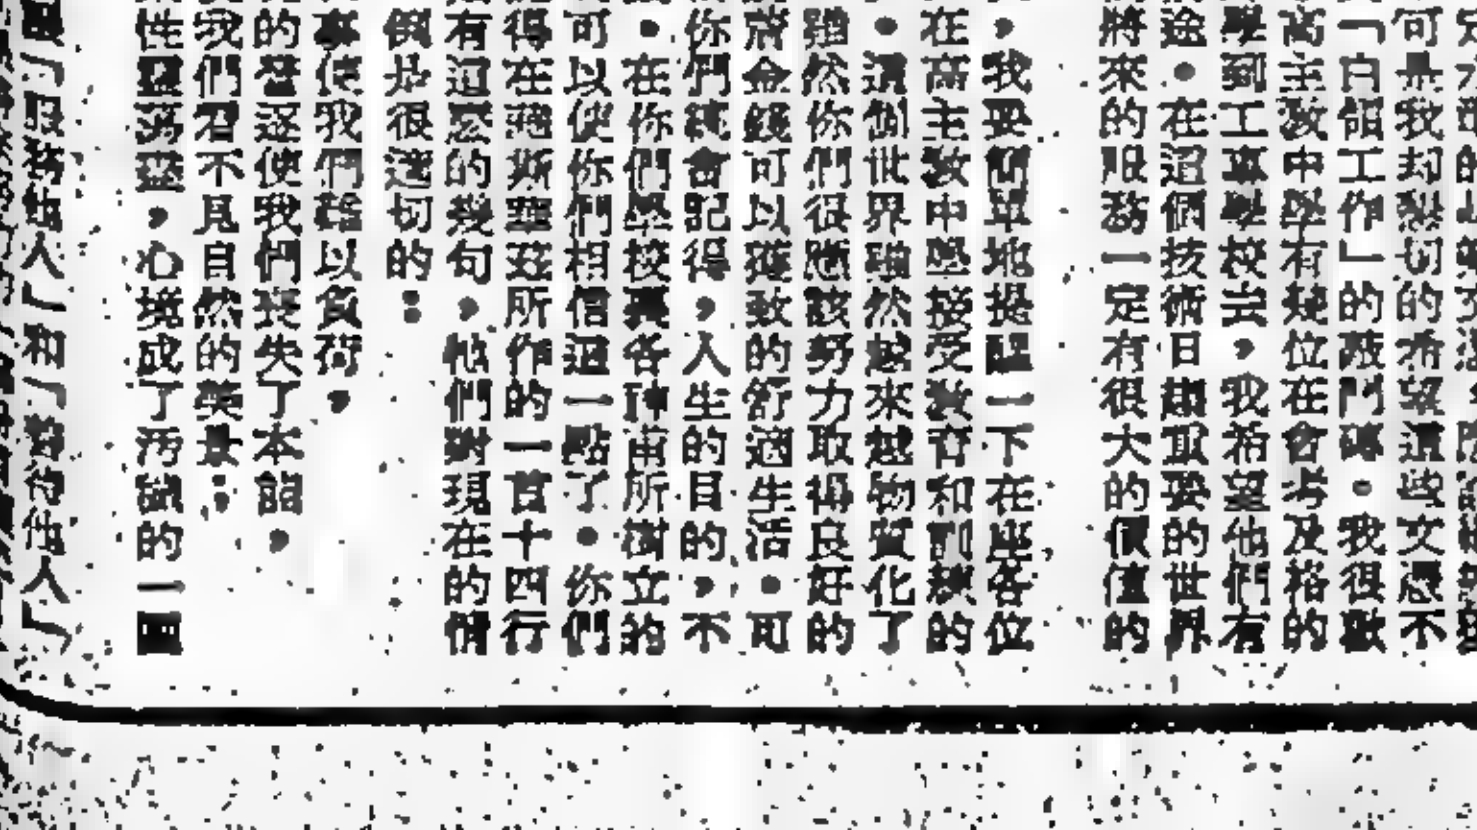 可是我却熱切的希望這些文憑不
「白領工作」的敲門磚。我很歡
高主教中學有幾位在會考及格的
學到工專學校去，我希望他們有
途。在這個技術日趨重要的世界
將來的服務一定有很大的價值的
，我要簡單地提醒一下在座各位
在高主教中學接受教育和訓練的
。這個世界雖然越來越物質化了
雖然你們很應該努力取得良好的
金錢可以獲致的舒適生活。可
你們總會記得，人生的目的，不
。在你們學校與各神甫所樹立的
可以使你們相信這一點了。你們
得在 所作的一首十四行
有這麼的幾句，他們對現在的情
倒是很適切的：
使我們難以負荷，
的營逐使我們喪失了本能。
我們看不見自然的美景；
性靈 ，心境成了污 的一團
「服務他人」和「 待他人」